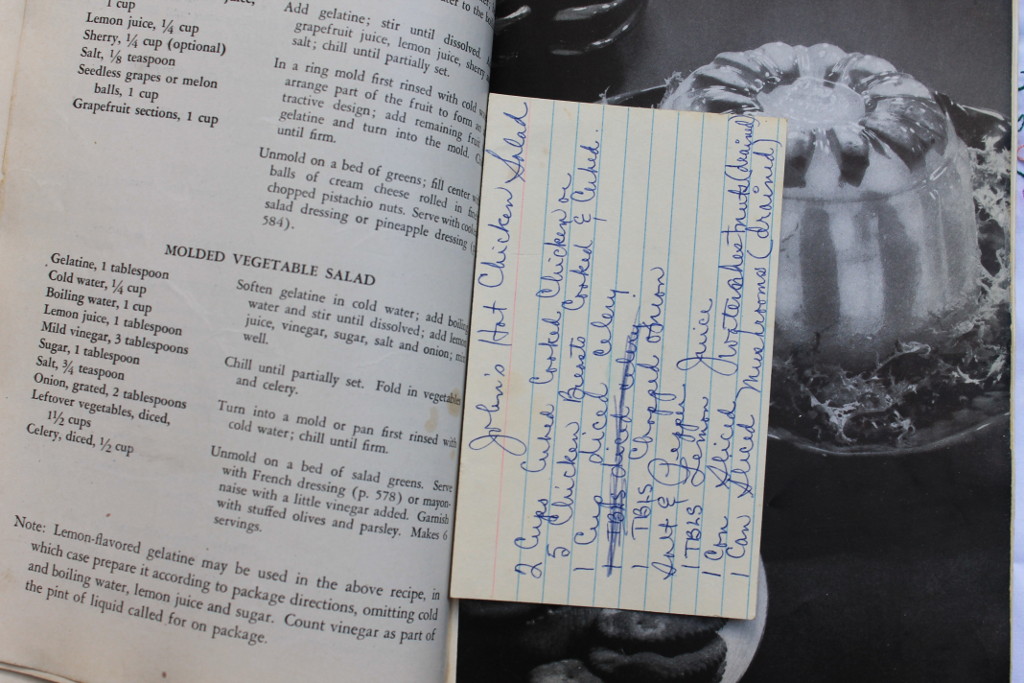 1 cup
Lemon juice, ¼ cup
Sherry, ¼ cup (optional)
Salt, ⅛ teaspoon
Seedless grapes or melon
balls, 1 cup
Grapefruit sections, 1 cup
Add gelatine; stir until dissolved.
grapefruit juice, lemon juice, sherry
salt; chill until partially set.
In a ring mold first rinsed with cold
arrange part of the fruit to form
tractive design; add remaining
gelatine and turn into the mold.
until firm.
Unmold on a bed of greens; fill center
balls of cream cheese rolled in
chopped pistachio nuts. Serve with
salad dressing or pineapple dressing
584).
MOLDED VEGETABLE SALAD
Gelatine, 1 tablespoon
Cold water, ¼ cup
Boiling water, 1 cup
Lemon juice, 1 tablespoon
Mild vinegar, 3 tablespoons
Sugar, 1 tablespoon
Salt, ¾ teaspoon
Onion, grated, 2 tablespoons
Leftover vegetables, diced,
1½ cups
Celery, diced, ½ cup
Soften gelatine in cold water; add
water and stir until dissolved; add
juice, vinegar, sugar, salt and onion;
well.
Chill until partially set. Fold in
and celery.
Turn into a mold or pan first rinsed
cold water; chill until firm.
Unmold on a bed of salad greens.
with French dressing (p. 578) or mayon-
naise with a little vinegar added. Garnish
with stuffed olives and parsley. Makes 6
servings.
Note: Lemon-flavored gelatine may be used in the above recipe, in
which case prepare it according to package directions, omitting cold
and boiling water, lemon juice and sugar. Count vinegar as part of
the pint of liquid called for on package.
John's Hot Chicken Salad
2 Cups Cubed Cooked Chicken or
5 Chicken Breasts Cooked & Cubed.
1 Cup diced celery
1 TBLS diced celery
1 TBLS Chopped onion
Salt & Pepper
1 TBLS Lemon Juice
1 Can Sliced (drained)
1 Can Sliced Mushrooms (drained)